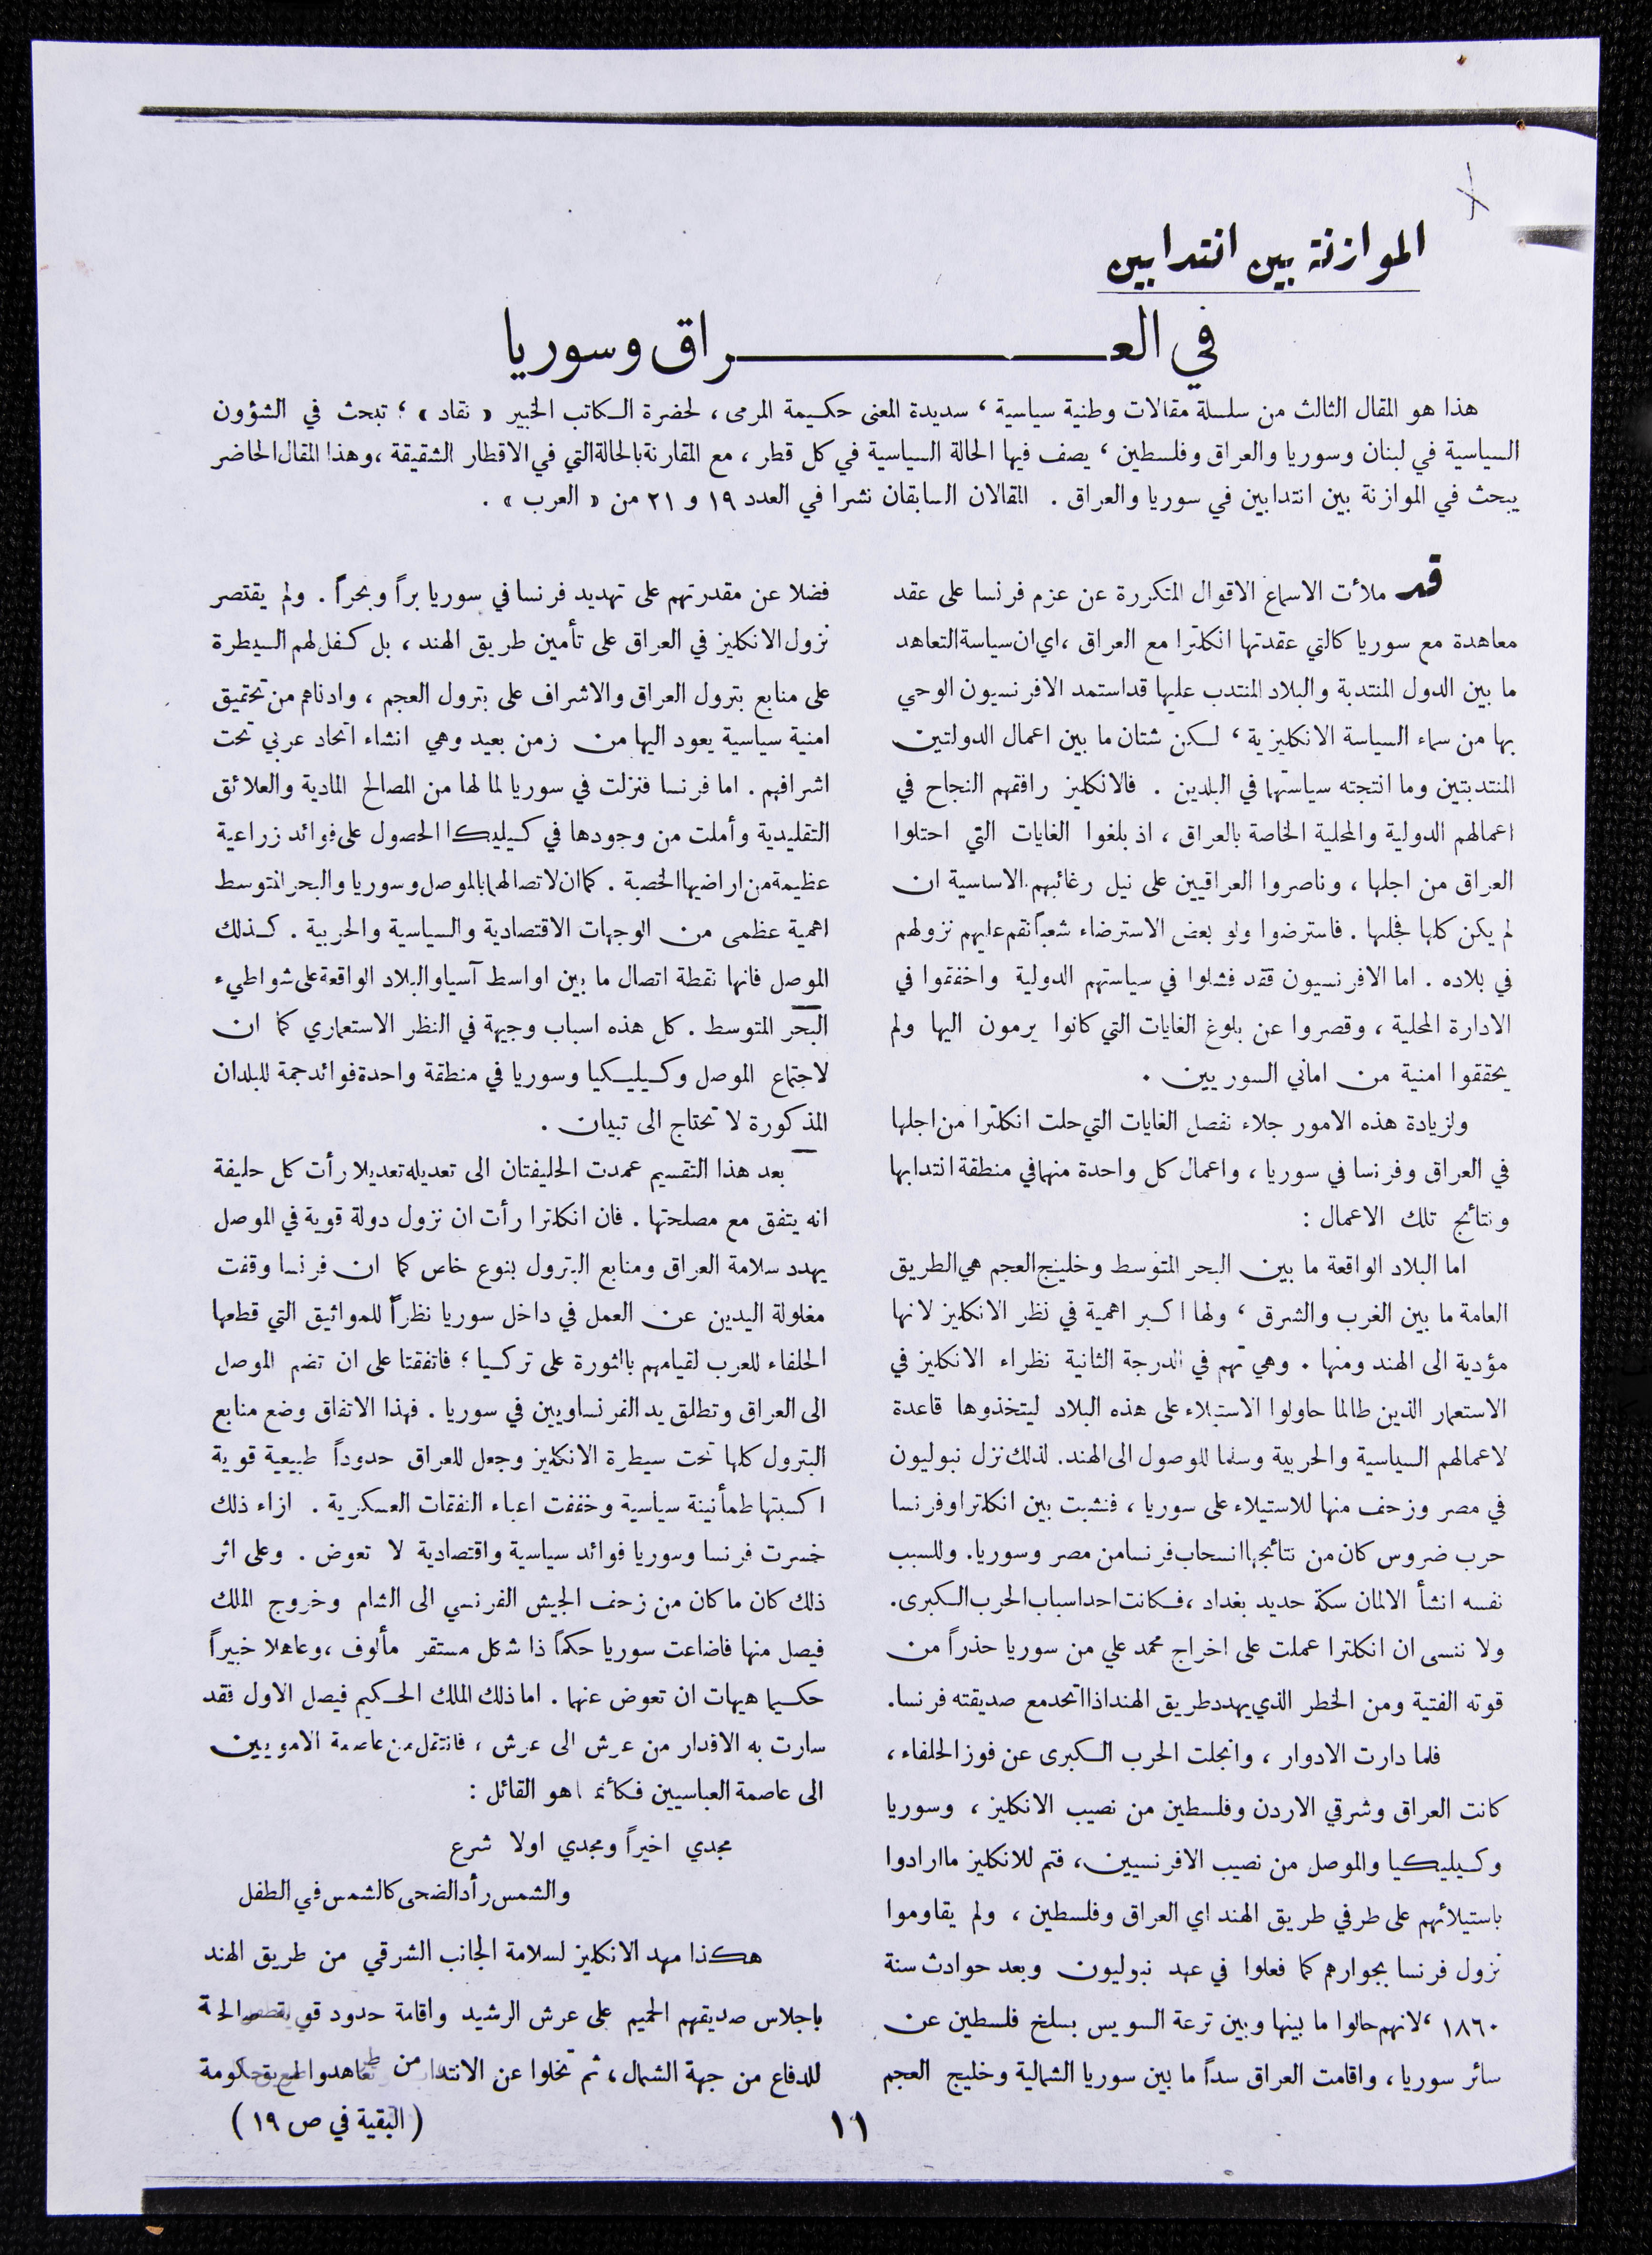 الموازنة بين انتدابين
في العـــراق وسوريا
هذا هو المقال الثالث من سلسلة مقالات وطنية سياسية ، سديدة المعنى حكيمة المرمى ، لحضرة الكاتب الخبير « نقاد » ؛ تبحث في الشؤون
السياسية في لبنان وسوريا والعراق وفلسطين ، يصف فيها الحالة السياسية في كل قطر ، مع المقارنة بالحالة التي في الاقطار الشقيقة ، وهذا المقال الحاضر
يبحث في الموازنة بين انتدابين في سوريا والعراق . المقالان السابقان نشرا في العدد ١٩ و ٢١ من « العرب » .
قد ملأت الاسماع الاقوال المتكررة عن عزم فرنسا على عقد
معاهدة مع سوريا كالتي عقدتها انكلترا مع العراق ، اي ان سياسة التعاهد
ما بين الدول المنتدبة والبلاد المنتدب عليها قد استمد الافرنسيون الوحي
بها من سماء السياسة الانكليزية ، لكن شتان ما بين اعمال الدولتين
المنتدبتين وما انتجته سياستهما في البلدين . فالانكليز رافقهم النجاح في
اعمالهم الدولية والمحلية الخاصة بالعراق ، اذ بلغوا الغايات التي احتلوا
العراق من اجلها ، وناصروا العراقيين على نيل رغائبهم الاساسية ان
لم يكن كلها فجلها . فاسترضوا ولو بعض الاسترضاء شعباً نقم عليهم نزولهم
في بلاده . اما الافرنسيون فقد فشلوا في سياستهم الدولية واخفقوا في
الادارة المحلية ، وقصروا عن بلوغ الغايات التي كانوا يرمون اليها ولم
يحققوا امنية من اماني السوريين .
ولزيادة هذه الامور جلاء نفصل الغايات التي حلت انكلترا من اجلها
في العراق وفرنسا في سوريا ، واعمال كل واحدة منهما في منطقة انتدابها
ونتائج تلك الاعمال :
اما البلاد الواقعة ما بين البحر المتوسط وخليج العجم هي الطريق
العامة ما بين الغرب والشرق ، ولها اكبر اهمية في نظر الانكليز لانها
مؤدية الى الهند ومنها . وهي تهم في الدرجة الثانية نظراء الانكليز في
الاستعمار الذين طالما حاولوا الاستيلاء على هذه البلاد ليتخذوها قاعدة
لاعمالهم السياسية والحربية وسلما للوصول الى الهند. لذلك نزل نبوليون
في مصر وزحف منها للاستيلاء على سوريا ، فنشبت بين انكلترا وفرنسا
حرب ضروس كان من نتائجها انسحاب فرنسا من مصر وسوريا. وللسبب
نفسه انشأ الالمان سكة حديد بغداد ، فكانت احد اسباب الحرب الكبرى.
ولا ننسى ان انكلترا عملت على اخراج محمد علي من سوريا حذراً من
قوته الفتية ومن الخطر الذي يهدد طريق الهند اذا اتحد مع صديقته فرنسا.
فلما دارت الادوار ، وانجلت الحرب الكبرى عن فوز الحلفاء ،
كانت العراق وشرقي الاردن وفلسطين من نصيب الانكليز ، وسوريا
وكيليكيا والموصل من نصيب الافرنسيين، فتم للانكليز ما ارادوا
باستيلائهم على طرفي طريق الهند اي العراق وفلسطين ، ولم يقاوموا
نزول فرنسا بجوارهم كما فعلوا في عهد نبوليون وبعد حوادث سنة
١٨٦٠ ، لانهم حالوا ما بينها وبين ترعة السويس بسلخ فلسطين عن
سائر سوريا ، واقامت العراق سداً ما بين سوريا الشمالية وخليج العجم
فضلا عن مقدرتهم على تهديد فرنسا في سوريا براً وبحراً . ولم يقتصر
نزول الانكليز في العراق على تأمين طريق الهند ، بل كفل لهم السيطرة
على منابع بترول العراق والاشراف على بترول العجم ، وادناهم من تحقيق
امنية سياسية يعود اليها من زمن بعيد وهي انشاء اتحاد عربي تحت
اشرافهم . اما فرنسا فنزلت في سوريا لما لها من المصالح المادية والعلائق
التقليدية وأملت من وجودها في كيليكا الحصول على فوائد زراعية
عظيمة من اراضيها الخصبة . كما ان لاتصالها بالموصل وسوريا والبحر المتوسط
اهمية عظمى من الوجهات الاقتصادية والسياسية والحربية . كذلك
الموصل فانها نقطة اتصال ما بين اواسط آسيا والبلاد الواقعة على شواطيء
البحر المتوسط . كل هذه اسباب وجيهة في النظر الاستعماري كما ان
لاجتماع الموصل وكيليكيا وسوريا في منطقة واحدة فوائد جمة للبلدان
المذكورة لا تحتاج الى تبيان .
بعد هذا التقسيم عمدت الحليفتان الى تعديله تعديلا رأت كل حليفة
انه يتفق مع مصلحتها . فان انكلترا رأت ان نزول دولة قوية في الموصل
يهدد سلامة العراق ومنابع البترول بنوع خاص كما ان فرنسا وقفت
مغلولة اليدين عن العمل في داخل سوريا نظراً للمواثيق التي قطعها
الحلفاء للعرب لقيامهم بالثورة على تركيا ؛ فاتفقتا على ان تضم الموصل
الى العراق وتطلق يد الفرنساويين في سوريا . فهذا الاتفاق وضع منابع
البترول كلها تحت سيطرة الانكليز وجعل للعراق حدوداً طبيعية قوية
اكسبتها طمأنينة سياسية وخففت اعباء النفقات العسكرية . ازاء ذلك
خسرت فرنسا وسوريا فوائد سياسية واقتصادية لا تعوض . وعلى اثر
ذلك كان ما كان من زحف الجيش الفرنسي الى الشام وخروج الملك
فيصل منها فاضاعت سوريا حكماً ذا شكل مستقر مألوف ، وعاهلا خبيراً
حكيما هيهات ان تعوض عنهما . اما ذلك الملك الحكيم فيصل الاول فقد
سارت به الاقدار من عرش الى عرش ، فانتقل من عاصمة الامويين
الى عاصمة العباسيين فكأنما هو القائل :
مجدي اخيراً ومجدي اولا شرع
والشمس رأد الضحى كالشمس في الطفل
هكذا مهد الانكليز لسلامة الجانب الشرقي من طريق الهند
باجلاس صديقهم الحميم على عرش الرشيد واقامة حدود قوية صالحة
للدفاع من جهة الشمال ، ثم تخلوا عن الانتداب وتعاهدوا مع حكومة
( البقية في ص ١٩ )
١١